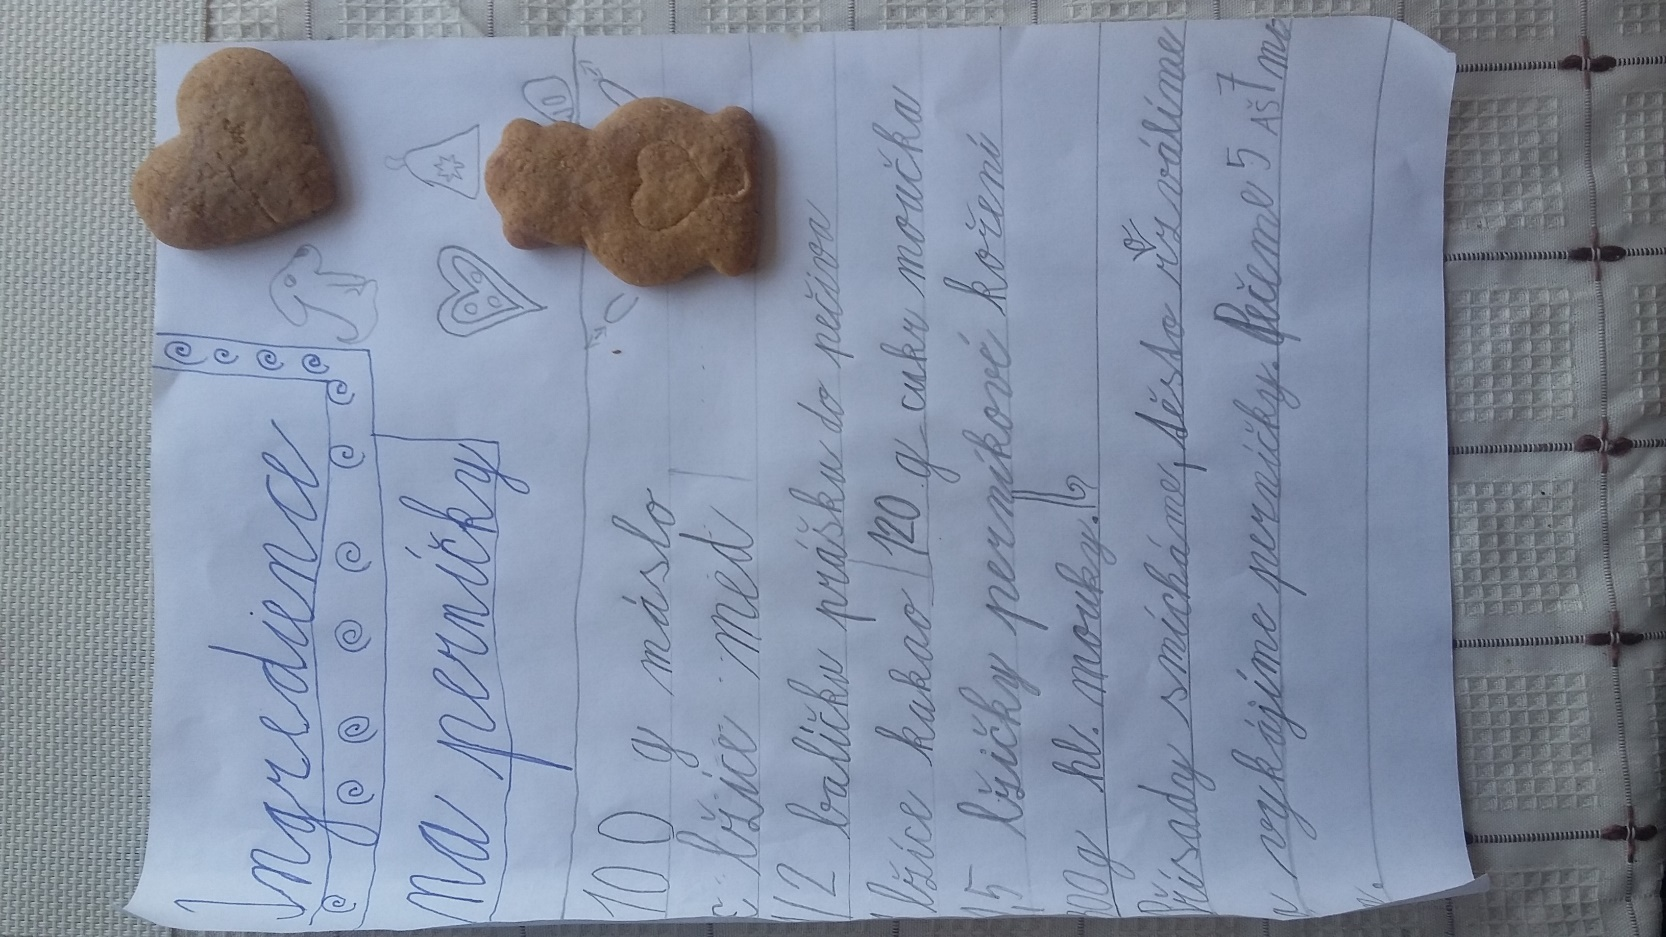 Ingredience
na perníčky
100 g máslo
lžíce med
1/2 balíčku prášku do pečiva
lžíce kakao 120 g cukr moučka
1,5 lžičky perníkové koření
g hl. mouky.
Přísady smícháme, těsto rozválíme
vykájíme perníčky. Pečeme 5 AŠ 7